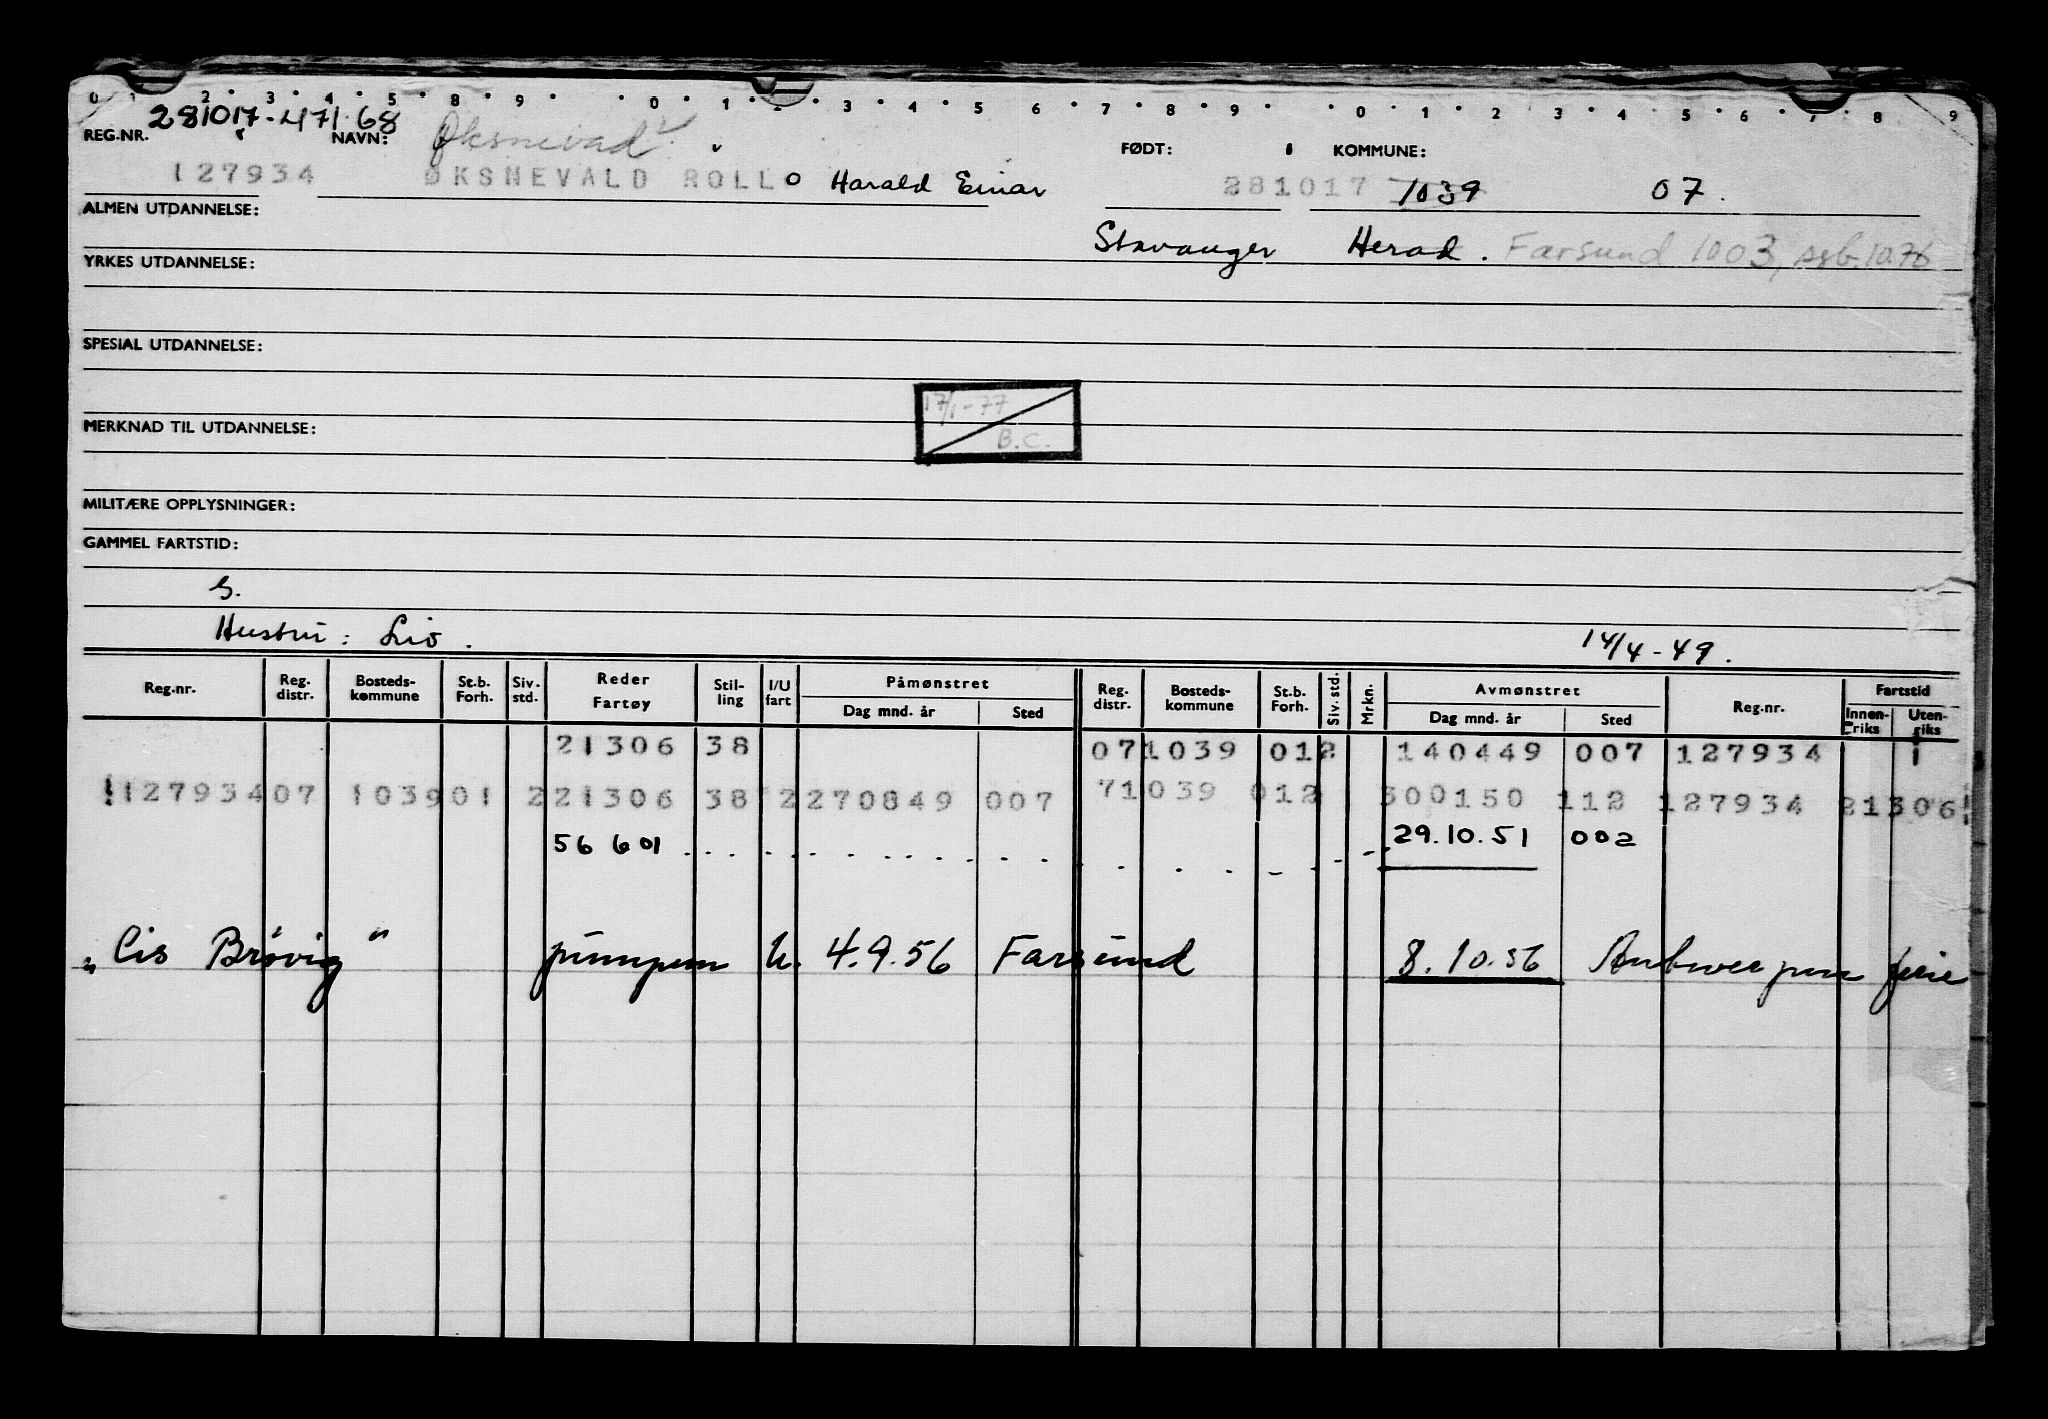 0 1 2 3 4 5 8 9 0 1 2 3 4 5 6 7 8 9 0 1 2 3 4 5 6 7 8 9
281017-47168
REG.NR. NAVN: Øksnevad FØDT: KOMMUNE:
127934 ØKSNEVALD ROLLO Harald Einar 281017 1039 07.
ALMEN UTDANNELSE:
Stavanger Herad. Farsund 1003, 10.76
YRKES UTDANNELSE:
SPESIAL UTDANNELSE:
17/1-77
B.C.
MERKNAD TIL UTDANNELSE:
MILITÆRE OPPLYSNINGER:
GAMMEL FARTSTID:
G.
Hustru: Liv. 14/4-49.
Reg.nr. Reg. distr. Bosteds-kommune St.b. Forh. Siv. std. Reder Fartøy Stil-ling I/U fart Påmønstret Dag mnd. år Sted Reg. distr. Bosteds-kommune St.b. Forh. Siv. std. Mrkn. Avmønstret Dag mnd. år Sted Reg.nr. Fartstid Innen-riks Uten-riks
21306 38 07 1039 01 2 140449 007 127934 1
127934 07 1039 01 2 21306 38 2 270849 007 7 1039 012 300150 112 127934 21306
56 601 29.10.51 002
„Cis Brøvig" pumpem U. 4.9.56 Farsund 8.10.56 Antwerpen ferie